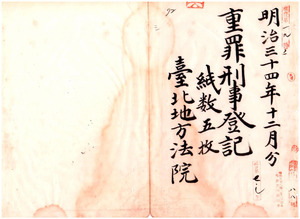 明治三十四年十二月分
重罪刑事登記
紙数五枚
臺北地方法院